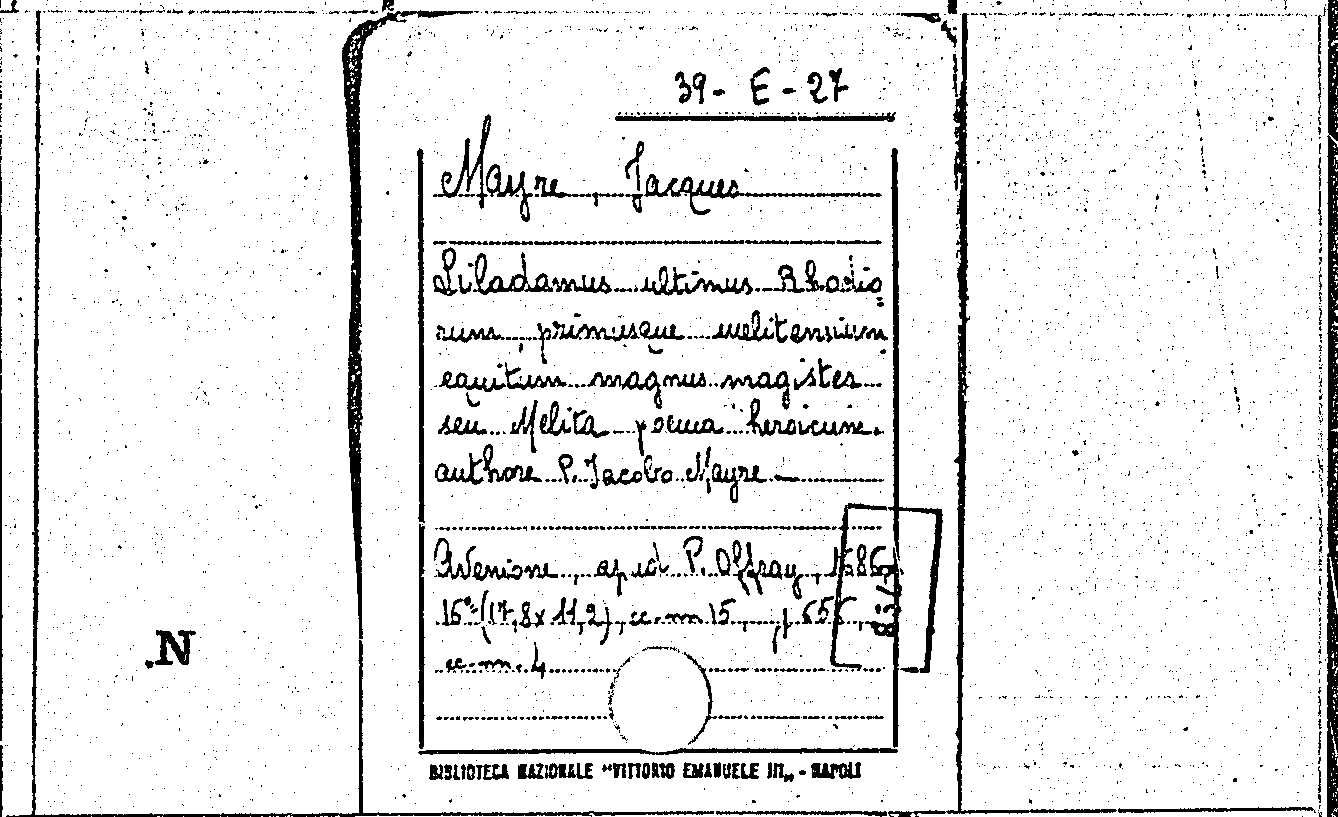 39 - E - 27
Mayre, Jacques
Liladamus ultimus Rhodio=
rum, primusque melitensium
equitum magnus magister
seu Melita poema heroicum.
authore P. Jacobo Mayre
Avenione, apud P. Offray, 1686,
16° (17,8 x 11,2), cc. nn 15, p 656,
cc. nn. 4
.N
BIBLIOTECA NAZIONALE "VITTORIO EMANUELE III„ - NAPOLI